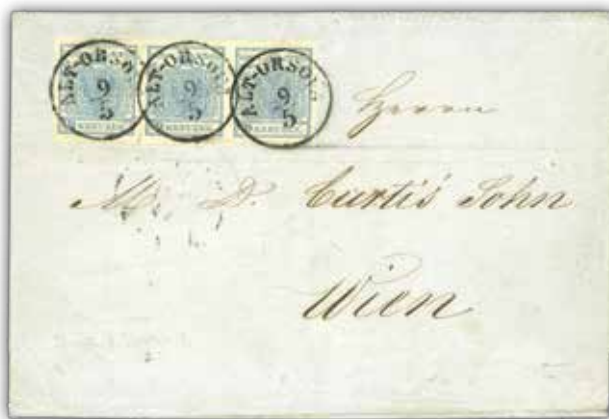 ALT-ORSOVA ALT-ORSOVA ALT-ORSOVA
9/5 9/5 9/5
Herrn
M. D. Curtis' Sohn
Wien